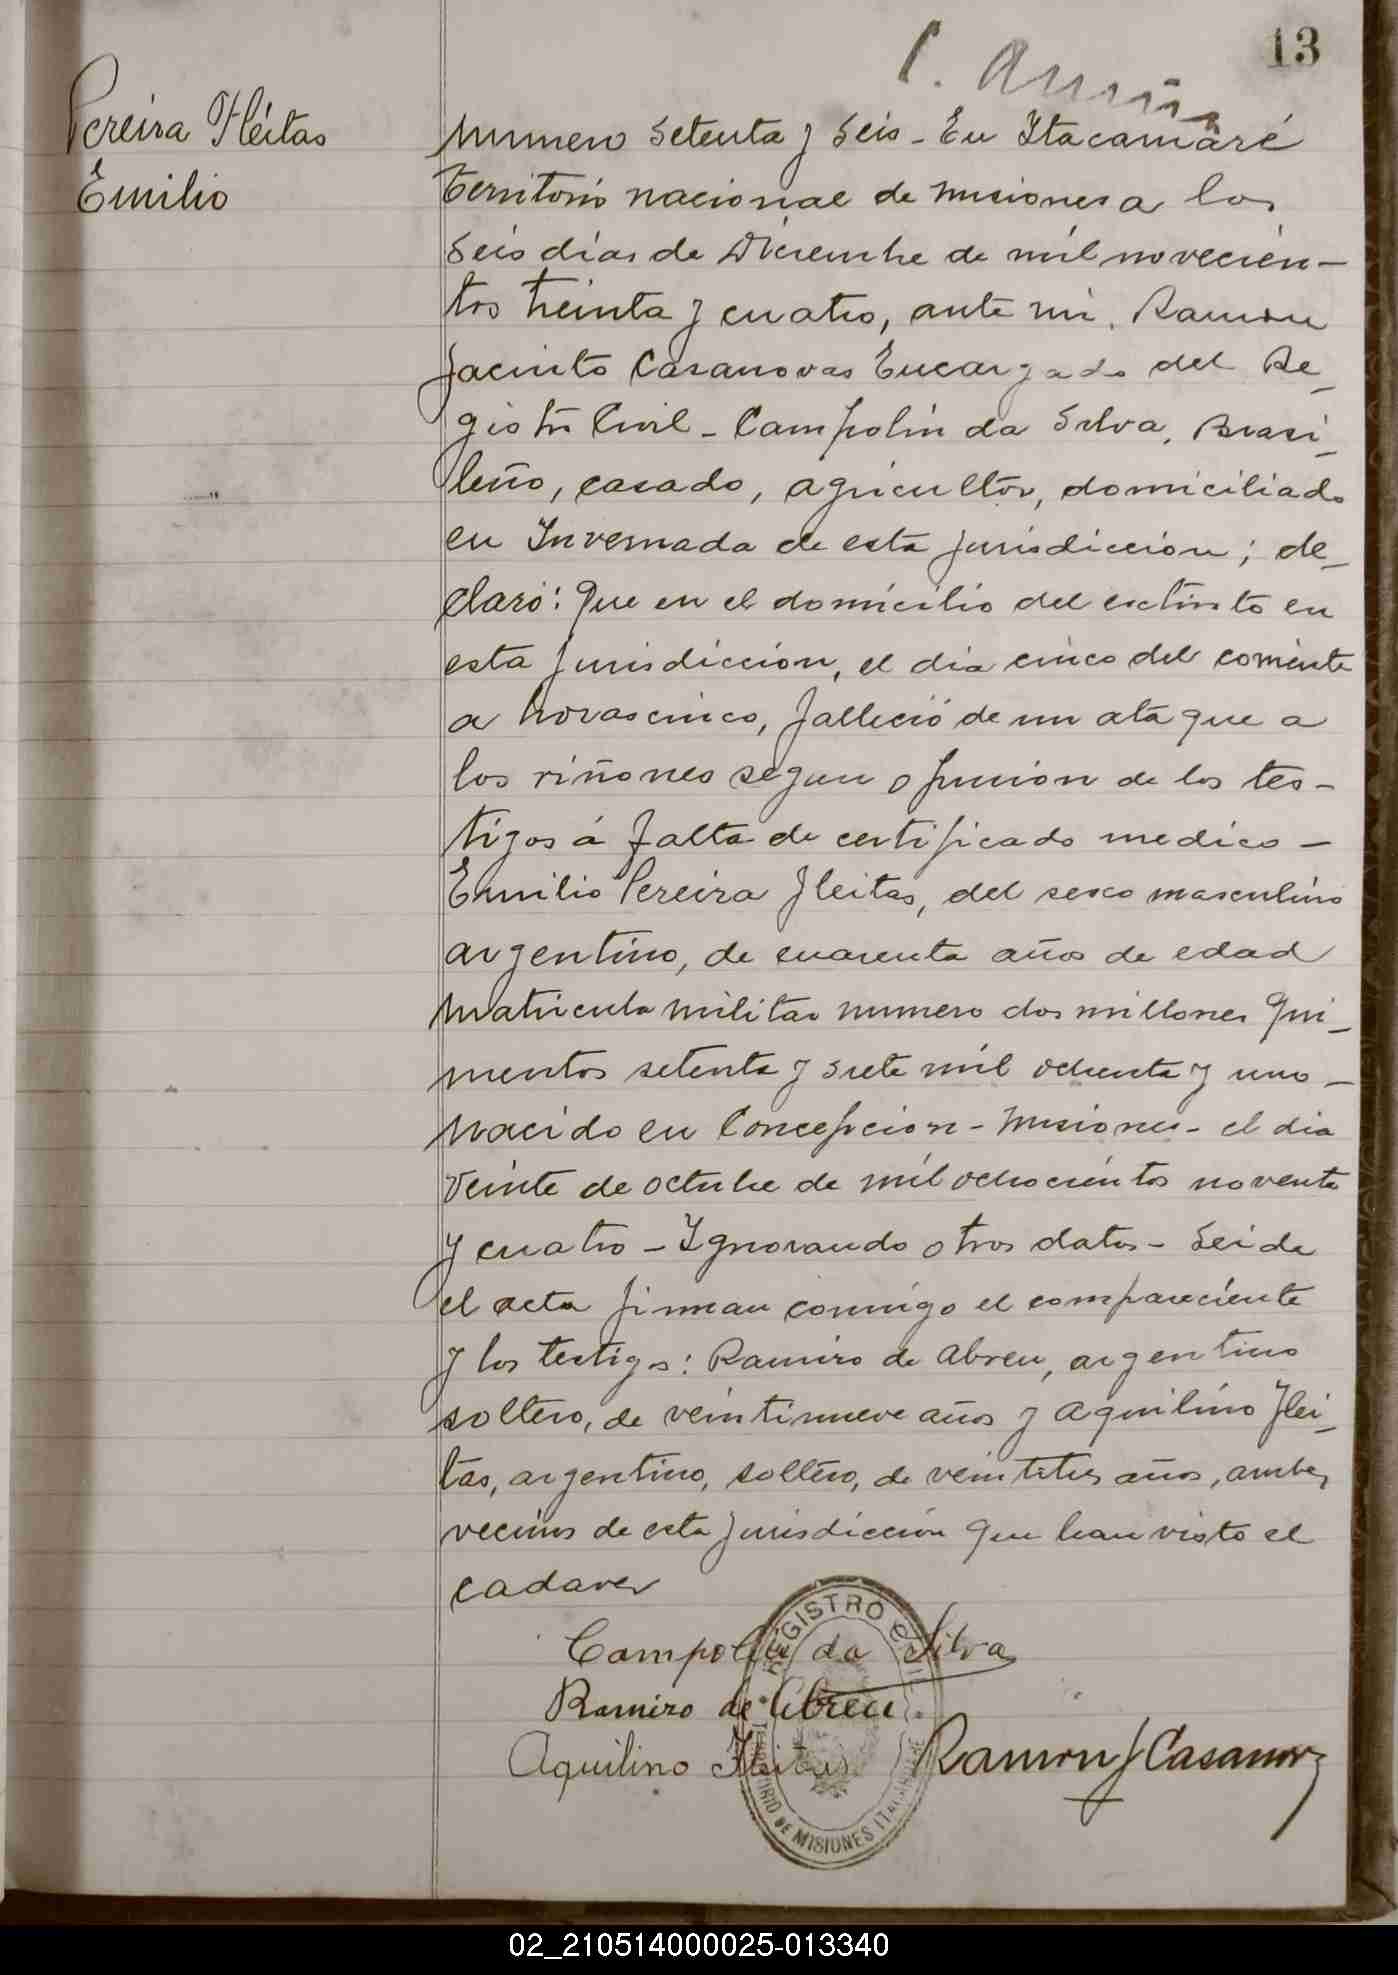 13
Pereira Fleitas
Emilio
Numero setenta y seis - En Itacaruaré
Territorio nacional de Misiones a los
seis dias de Diciembre de mil novecien-
tos treinta y cuatro, ante mi, Ramon
Jacinto Casanovas Encargado del Re-
gistro Civil - Campolin da Silva, Brasi-
leño, casado, agricultor, domiciliado
en Invernada de esta jurisdiccion; de-
claró: Que en el domicilio del extinto en
esta jurisdiccion, el dia cinco del corriente
a horas cinco, falleció de un ataque a
los riñones segun opinion de los tes-
tigos á falta de certificado medico -
Emilio Pereira Fleitas, del sexo masculino
argentino, de cuarenta años de edad
matricula militar numero dos millones qui-
nientos setenta y siete mil ochenta y uno -
nacido en Concepcion - Misiones - el dia
veinte de octubre de mil ochocientos noventa
y cuatro - Ignorando otros datos - Leida
el acta firman conmigo el compareciente
y los testigos: Ramiro de Abreu, argentino
soltero, de veintinueve años y Aquilino Flei-
tas, argentino, soltero, de veintitres años, ambos
vecinos de esta jurisdiccion que han visto el
cadaver
Campolin da Silva
Ramiro de Abreu
Aquilino Fleitas
Ramon J Casanovas
REGISTRO CIVIL
TERRITORIO DE MISIONES ITACARUARE
02_210514000025-013340